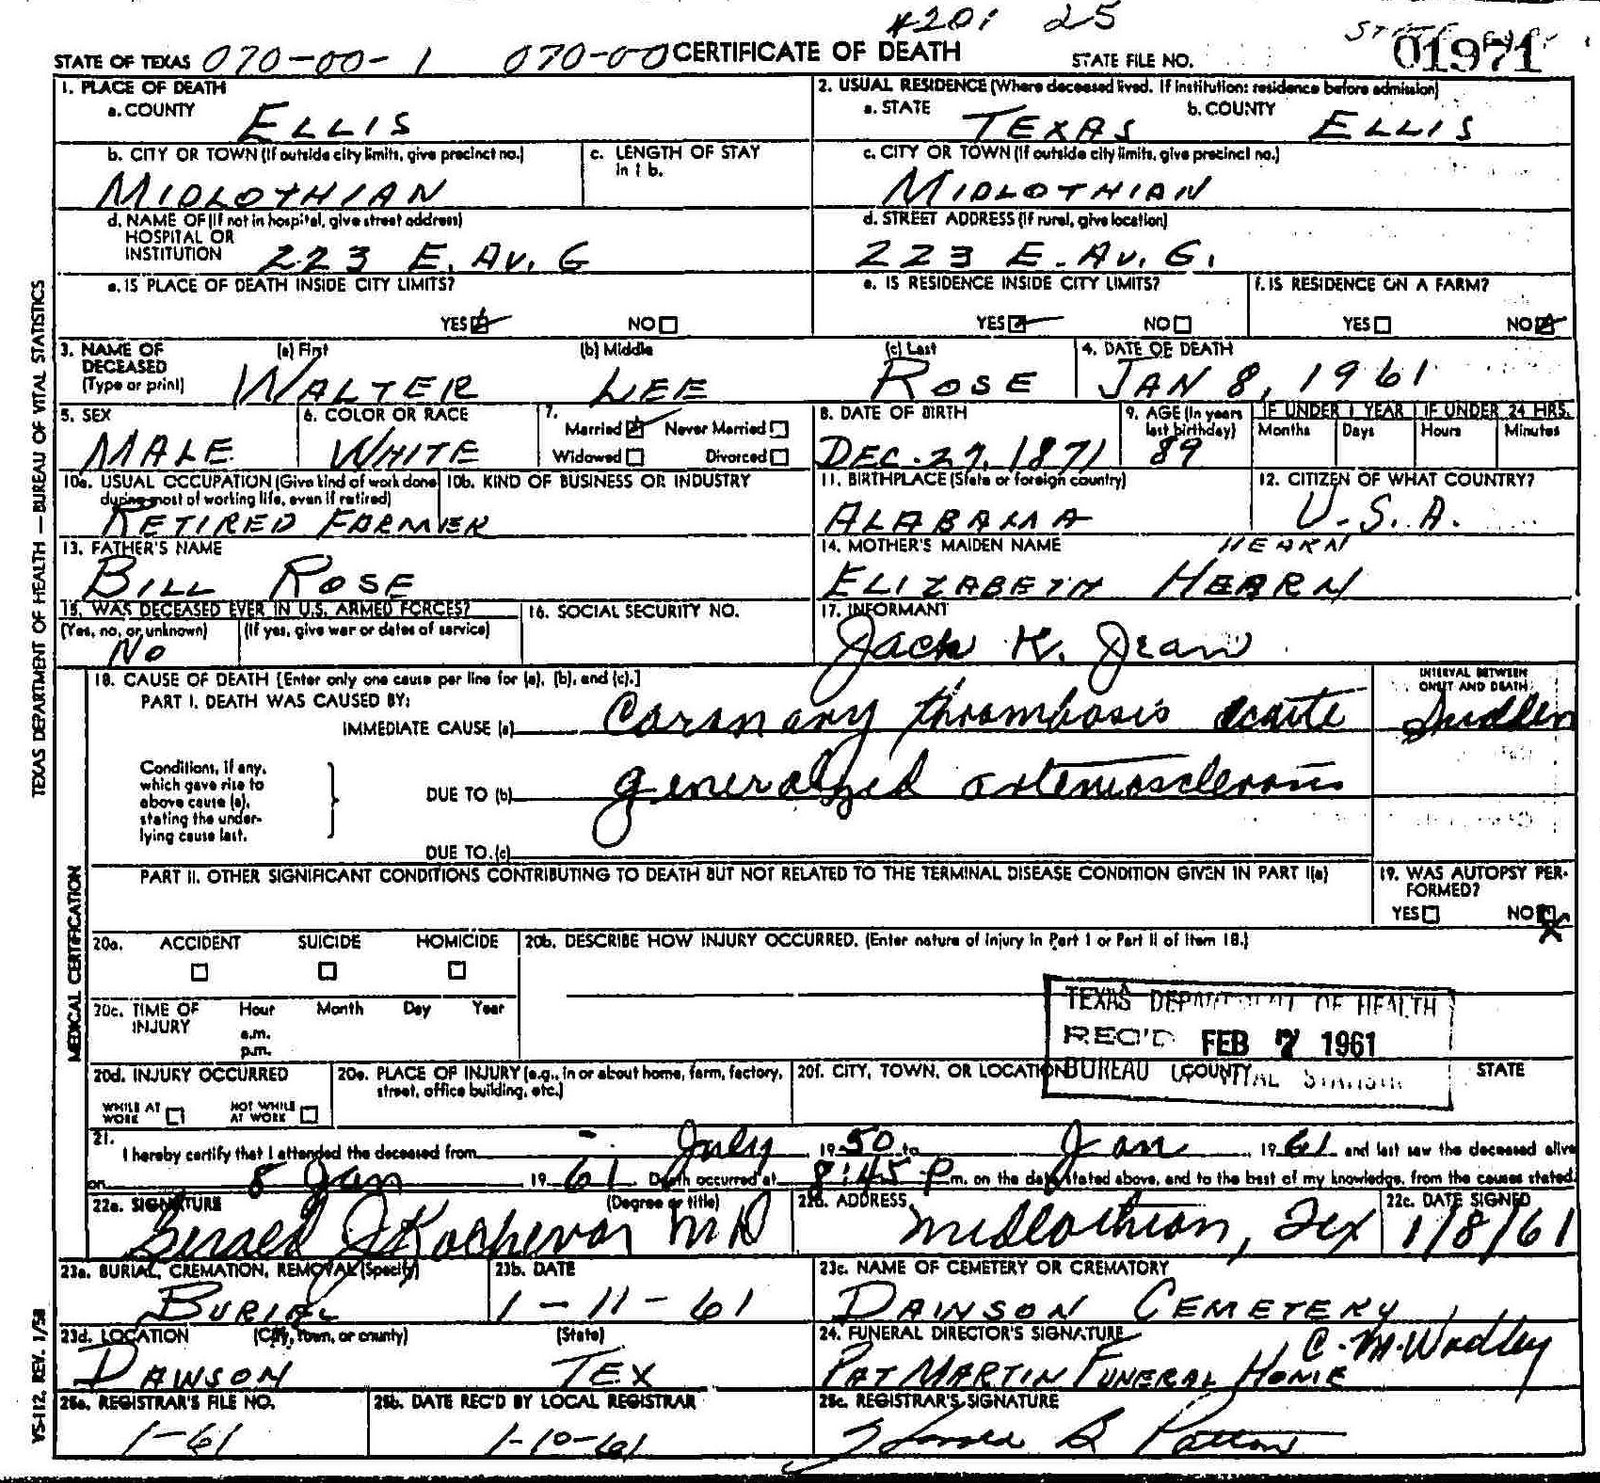 #201 25
STATE OF TEXAS 070-00-1 070-00 CERTIFICATE OF DEATH STATE FILE NO. 01971
1. PLACE OF DEATH
a. COUNTY ELLIS
2. USUAL RESIDENCE (Where deceased lived. If institution: residence before admission)
a. STATE TEXAS b. COUNTY ELLIS
b. CITY OR TOWN (If outside city limits, give precinct no.) MIDLOTHIAN
c. LENGTH OF STAY in 1 b.
c. CITY OR TOWN (If outside city limits, give precinct no.) MIDLOTHIAN
d. NAME OF (If not in hospital, give street address)
HOSPITAL OR
INSTITUTION 223 E. AV. G
d. STREET ADDRESS (If rural, give location)
223 E. AV. G.
e. IS PLACE OF DEATH INSIDE CITY LIMITS?
YES NO
e. IS RESIDENCE INSIDE CITY LIMITS?
YES NO
f. IS RESIDENCE ON A FARM?
YES NO
3. NAME OF DECEASED (Type or print)
(a) First (b) Middle (c) Last
WALTER LEE ROSE
4. DATE OF DEATH
JAN 8, 1961
5. SEX
MALE
6. COLOR OR RACE
WHITE
7. Married Never Married
Widowed Divorced
8. DATE OF BIRTH
DEC. 27, 1871
9. AGE (In years last birthday)
89
IF UNDER 1 YEAR IF UNDER 24 HRS.
Months Days Hours Minutes
10a. USUAL OCCUPATION (Give kind of work done during most of working life, even if retired)
RETIRED FARMER
10b. KIND OF BUSINESS OR INDUSTRY
11. BIRTHPLACE (State or foreign country)
ALABAMA
12. CITIZEN OF WHAT COUNTRY?
U.S.A.
13. FATHER'S NAME
BILL ROSE
14. MOTHER'S MAIDEN NAME
HEARN
ELIZABETH HEARN
15. WAS DECEASED EVER IN U.S. ARMED FORCES?
(Yes, no, or unknown) (If yes, give war or dates of service)
NO
16. SOCIAL SECURITY NO.
17. INFORMANT
Jack K. Jean
18. CAUSE OF DEATH [Enter only one cause per line for (a), (b), and (c).]
PART I. DEATH WAS CAUSED BY:
IMMEDIATE CAUSE (a) Coronary thrombosis acute
INTERVAL BETWEEN ONSET AND DEATH
Sudden
Conditions, if any, which gave rise to above cause (a), stating the underlying cause last.
DUE TO (b) generalized arteriosclerosis
DUE TO (c)
PART II. OTHER SIGNIFICANT CONDITIONS CONTRIBUTING TO DEATH BUT NOT RELATED TO THE TERMINAL DISEASE CONDITION GIVEN IN PART I(a)
19. WAS AUTOPSY PERFORMED?
YES NO X
20a. ACCIDENT SUICIDE HOMICIDE
20b. DESCRIBE HOW INJURY OCCURRED. (Enter nature of injury in Part I or Part II of item 18.)
20c. TIME OF INJURY Hour Month Day Year
a.m.
p.m.
TEXAS DEPARTMENT OF HEALTH
REC'D FEB 7 1961
BUREAU OF VITAL STATISTICS
20d. INJURY OCCURRED
WHILE AT WORK NOT WHILE AT WORK
20e. PLACE OF INJURY (e.g., in or about home, farm, factory, street, office building, etc.)
20f. CITY, TOWN, OR LOCATION COUNTY STATE
21. I hereby certify that I attended the deceased from July 1950 to Jan 1961 and last saw the deceased alive
on 8 Jan 1961. Death occurred at 8:45 P m. on the date stated above, and to the best of my knowledge, from the causes stated.
22a. SIGNATURE (Degree or title)
Gerald J Kochevar MD
22b. ADDRESS
Midlothian, Tex
22c. DATE SIGNED
1/8/61
23a. BURIAL, CREMATION, REMOVAL (Specify)
BURIAL
23b. DATE
1-11-61
23c. NAME OF CEMETERY OR CREMATORY
DAWSON CEMETERY
23d. LOCATION (City, town, or county) (State)
DAWSON TEX
24. FUNERAL DIRECTOR'S SIGNATURE
PAT MARTIN FUNERAL HOME C. M. Wadley
25a. REGISTRAR'S FILE NO.
1-61
25b. DATE REC'D BY LOCAL REGISTRAR
1-10-61
25c. REGISTRAR'S SIGNATURE
B Patton
TEXAS DEPARTMENT OF HEALTH — BUREAU OF VITAL STATISTICS
MEDICAL CERTIFICATION
VS-112, REV. 1/58